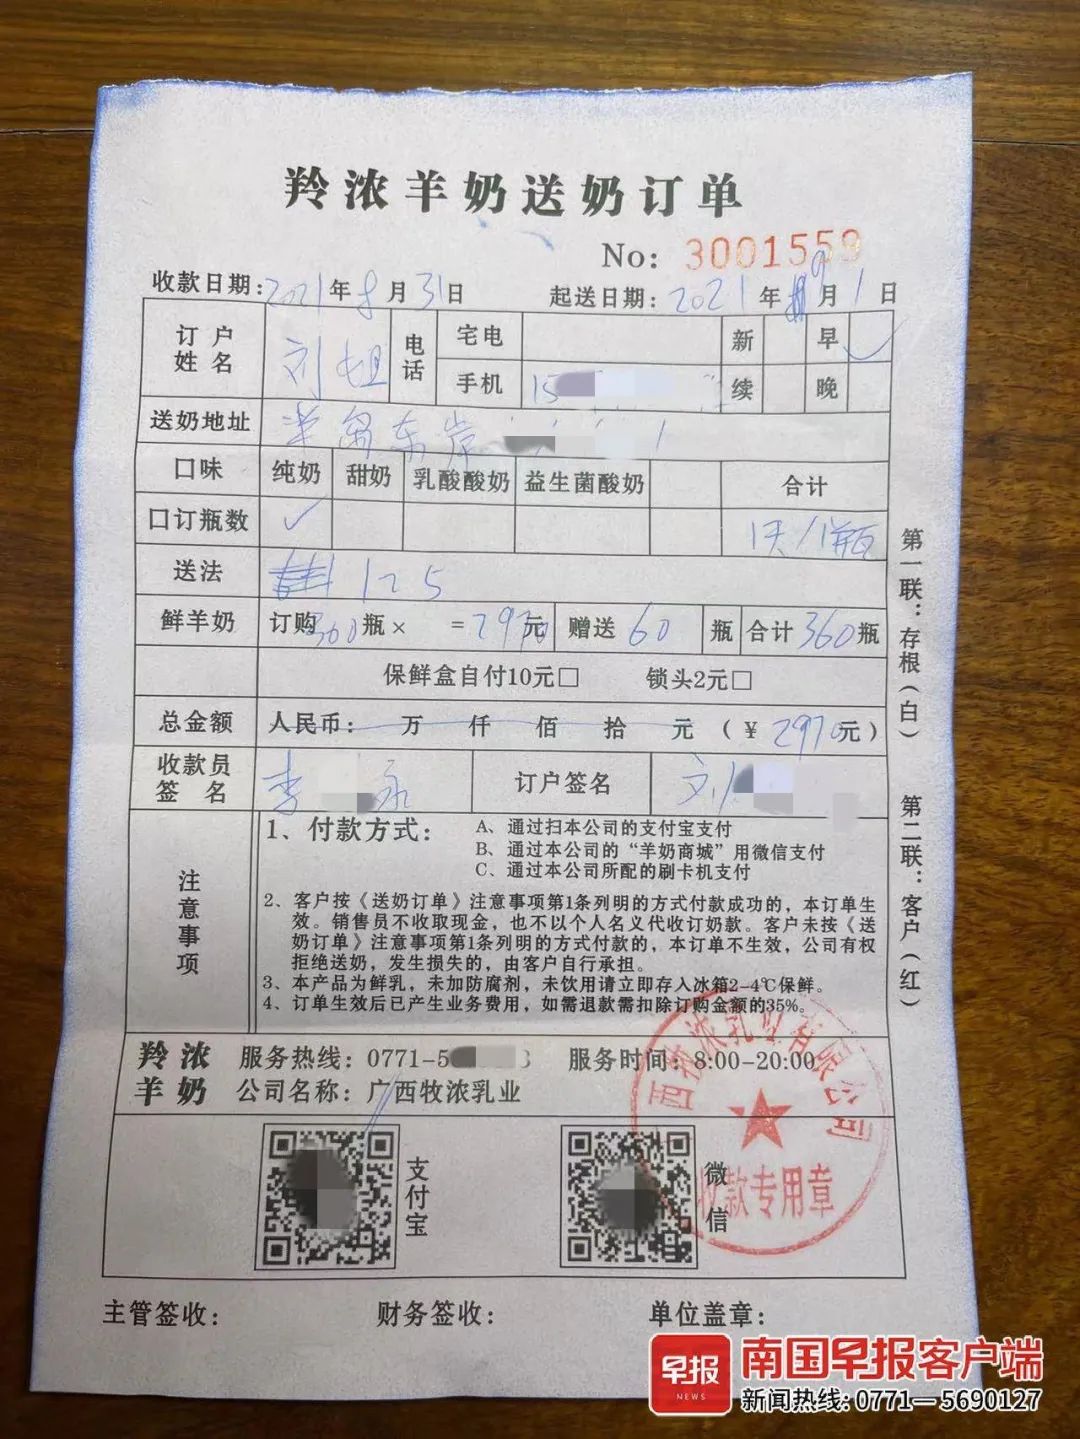 羚浓羊奶送奶订单
No: 3001559
收款日期:2021年8月31日 起送日期:2021年9月1日
订户姓名 刘姐 电话 宅电 新 早 ✓
手机 15 续 晚
送奶地址 半岛东岸
口味 纯奶 甜奶 乳酸酸奶 益生菌酸奶 合计
口订瓶数 ✓ 1天/1瓶
送法 125
鲜羊奶 订购300瓶× =2970元 赠送60瓶 合计360瓶
保鲜盒自付10元□ 锁头2元□
总金额 人民币: 万 仟 佰 拾 元 (¥2970元)
收款员签名 李 永 订户签名 刘
注意事项
1、付款方式: A、通过扫本公司的支付宝支付
B、通过本公司的“羊奶商城”用微信支付
C、通过本公司所配的刷卡机支付
2、客户按《送奶订单》注意事项第1条列明的方式付款成功的，本订单生
效。销售员不收取现金，也不以个人名义代收订奶款。客户未按《送
奶订单》注意事项第1条列明的方式付款的，本订单不生效，公司有权
拒绝送奶，发生损失的，由客户自行承担。
3、本产品为鲜乳，未加防腐剂，未饮用请立即存入冰箱2-4℃保鲜。
4、订单生效后已产生业务费用，如需退款需扣除订购金额的35%。
第一联:存根(白) 第二联:客户(红)
羚浓羊奶 服务热线: 0771-5 服务时间: 8:00-20:00
公司名称: 广西牧浓乳业
支付宝 微信
西牧浓乳业有限公司
收款专用章
主管签收: 财务签收: 单位盖章:
早报 NEWS
南国早报客户端
新闻热线:0771—5690127